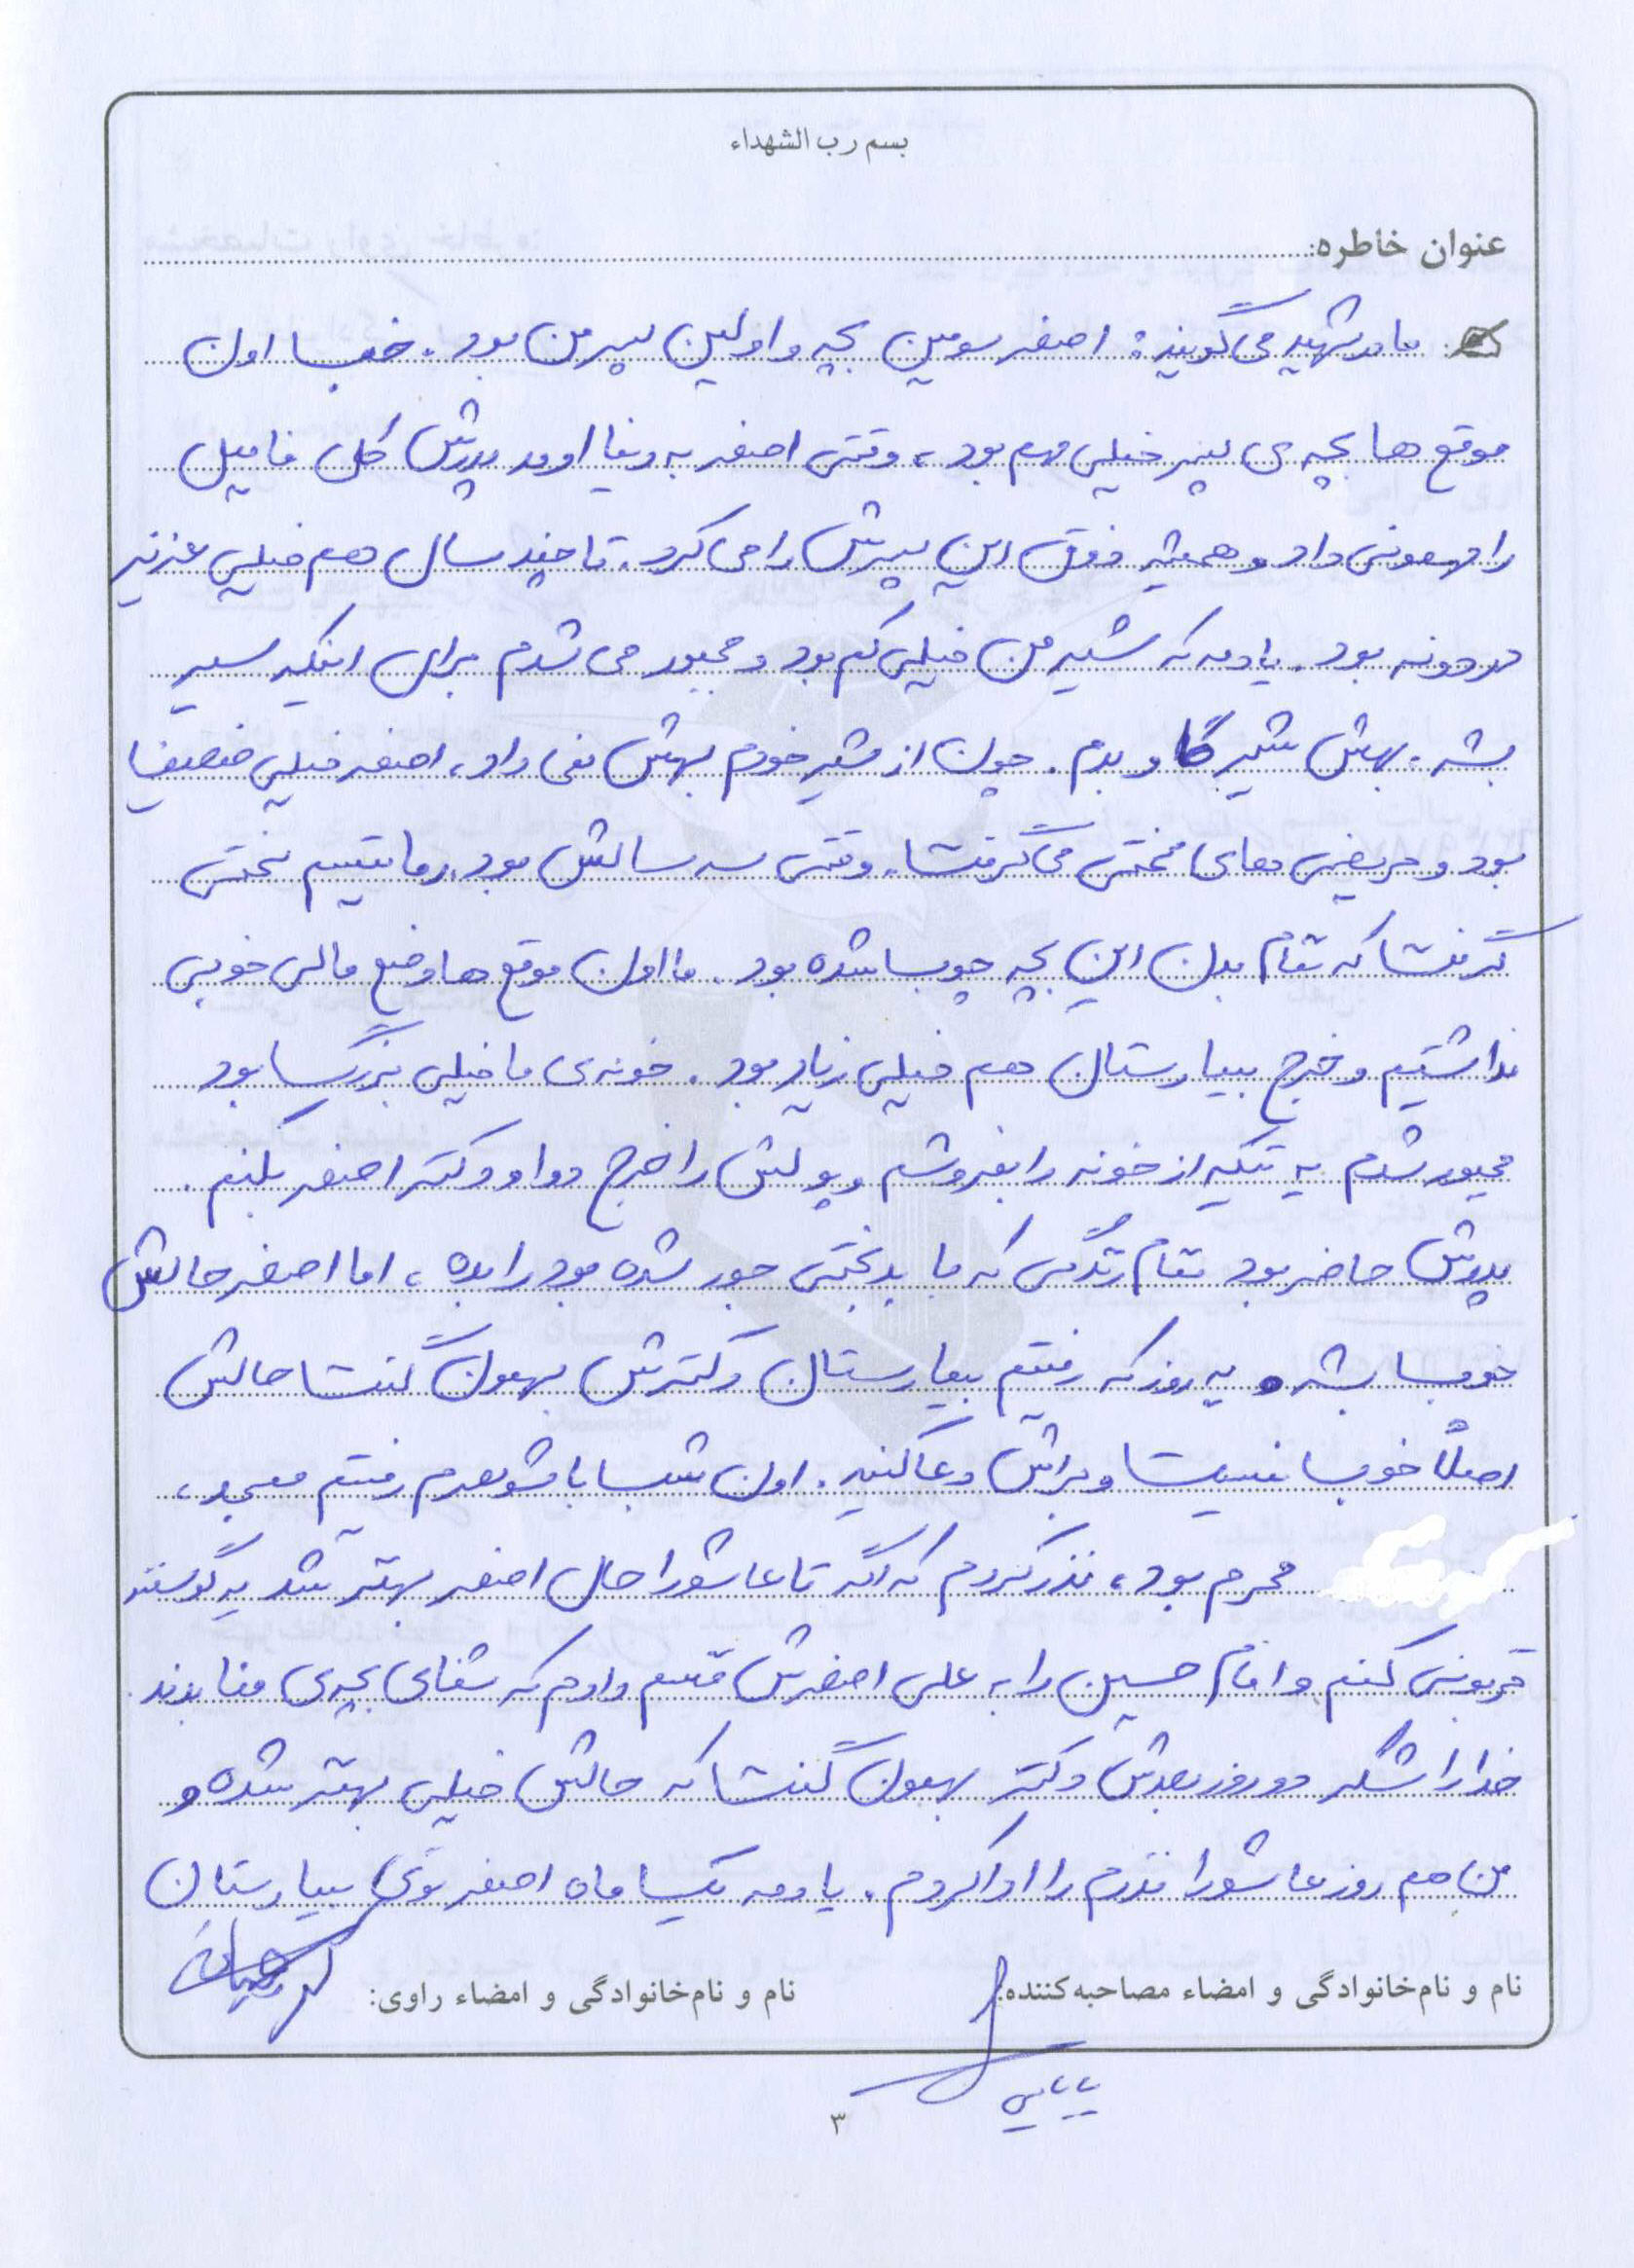 بسم رب الشهداء
عنوان خاطره:
مادر شهید می گویند: اصغر سومین بچه و اولین پسر من بود. خب اون
موقع ها بچه ی پسر خیلی مهم بود، وقتی اصغر به دنیا اومد پدرش کل فامیل
را مهمونی داد و همیشه ذوق این پسرش را می کرد. تا چند سال هم خیلی عزیز
دردونه بود. یادمه که شیر من خیلی کم بود و مجبور می شدم برای اینکه سیر
بشه. بهش شیر گاو بدم. چون از شیر خودم بهش نمی داد، اصغر خیلی ضعیف
بود و مریضی های مختلفی می گرفت. وقتی سه سالش بود. رماتیسم سختی
گرفت که تمام بدن این بچه چوب شده بود. ما اون موقع ها وضع مالی خوبی
نداشتیم و خرج بیمارستان هم خیلی زیاد بود. خونه ی ما خیلی بزرگ بود
مجبور شدم یه تیکه از خونه را بفروشم و پولش را خرج دوا و دکتر اصغر بکنم.
پدرش حاضر بود تمام زندگی که با بدبختی جور شده بود را بده، اما اصغر حالش
خوب بشه. یه روز که رفتم بیمارستان دکترش بهمون گفت حالش
اصلاً خوب نیست و براش دعا کنید. اون شب با شوهرم رفتیم مسجد،
محرم بود، نذر کردم که اگه تا عاشورا حال اصغر بهتر شد یه گوسفند
قربونی کنم و امام حسین را به علی اصغرش قسم دادم که شفای بچه ی منا بدند.
خدا را شکر دو روز بعدش دکتر بهمون گفت که حالش خیلی بهتر شده و
من هم روز عاشورا نذرم را ادا کردم. یادمه یک ماه اصغر توی بیمارستان
نام و نام‌خانوادگی و امضاء مصاحبه‌کننده: نام و نام‌خانوادگی و امضاء راوی:
بابایی
۳